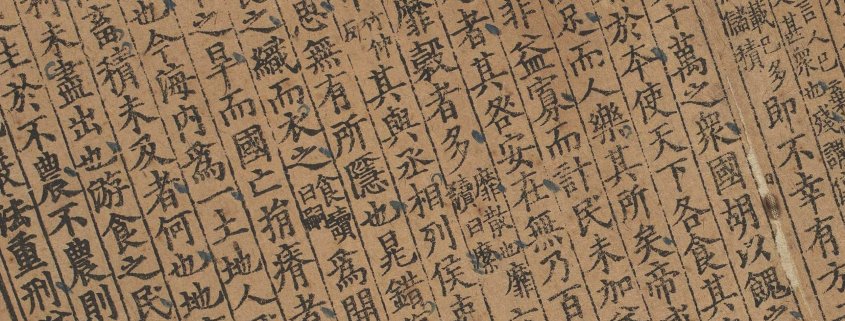 言人巳
儲積
載巳多即不幸有方
十萬之眾國胡以餽之
於本使天下各食其
足而人樂其所矣帝
非益寡而計民未加
者其咎安在無乃百
靡穀者多靡散也靡
竹仲反其與丞相列侯吏
愍無有所隱也晁錯
織而衣之食讀曰飤為開
之旱而國亡捐瘠者
也今海內為一土地人
畜積未及者何也地
未盡出也游食之民
生於不農不農則
法重刑